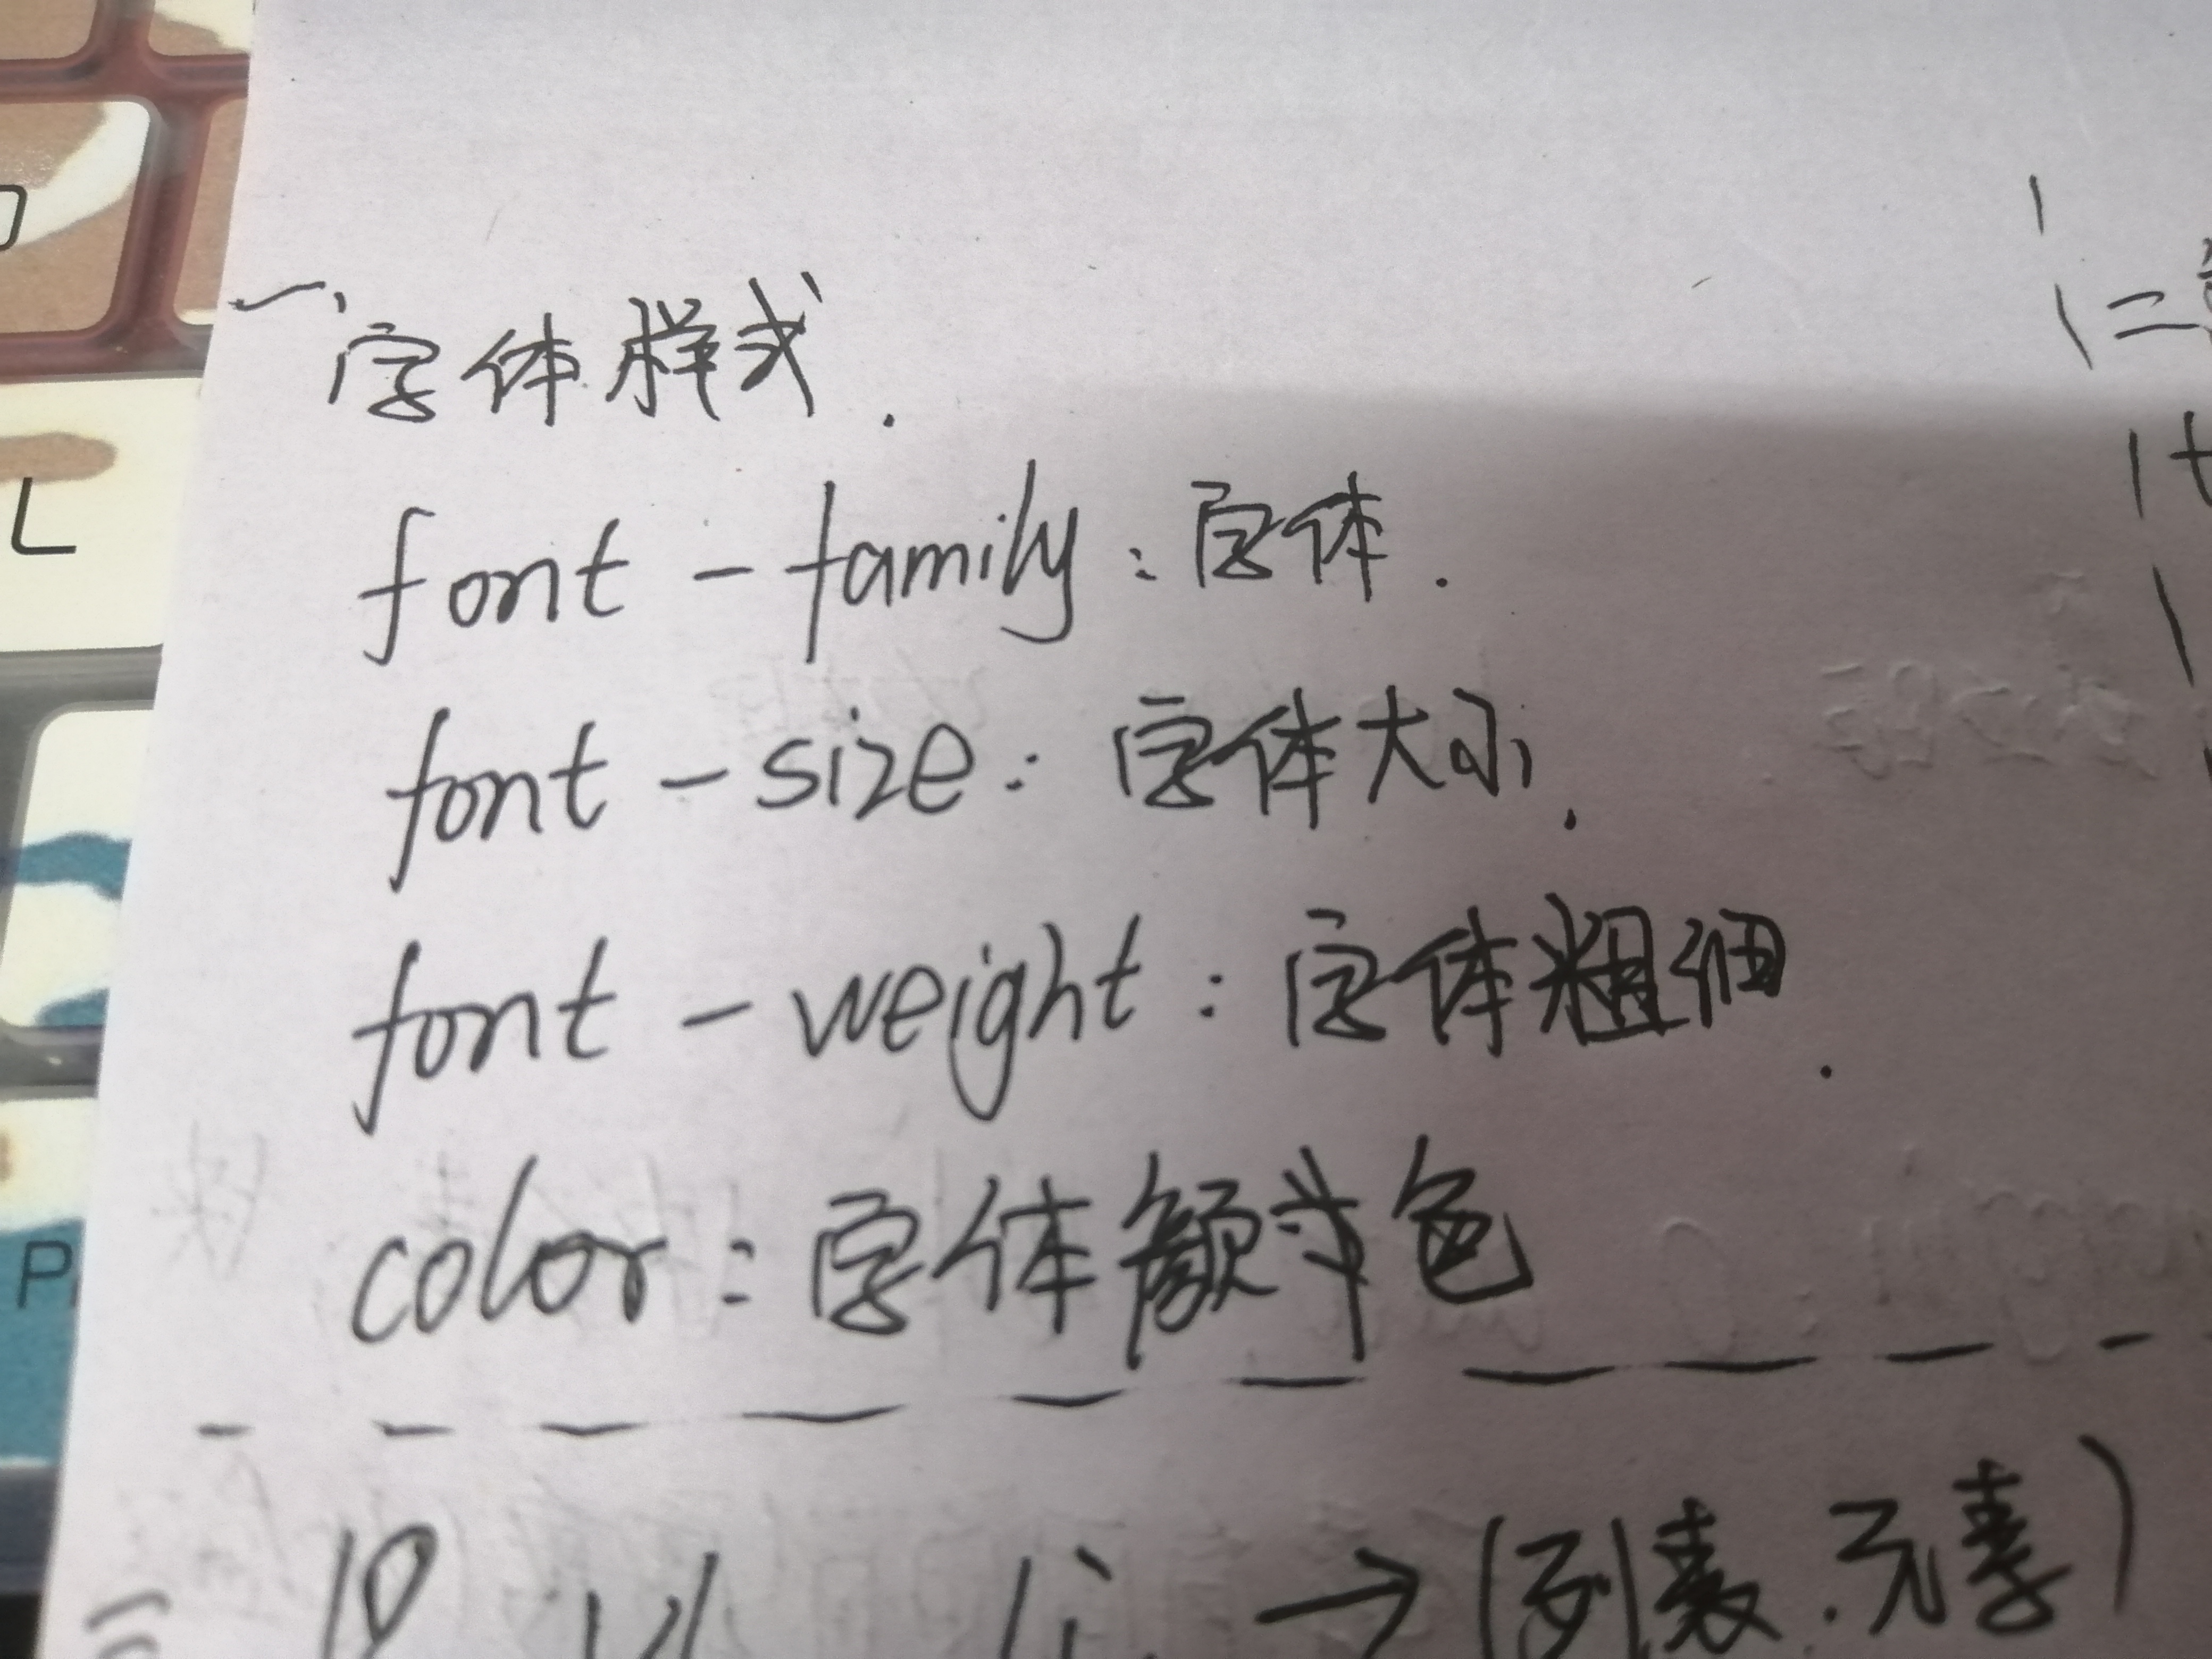 一、字体样式.
font-family:字体.
font-size:字体大小.
font-weight:字体粗细.
color:字体颜色
→(列表.元素)
L
P